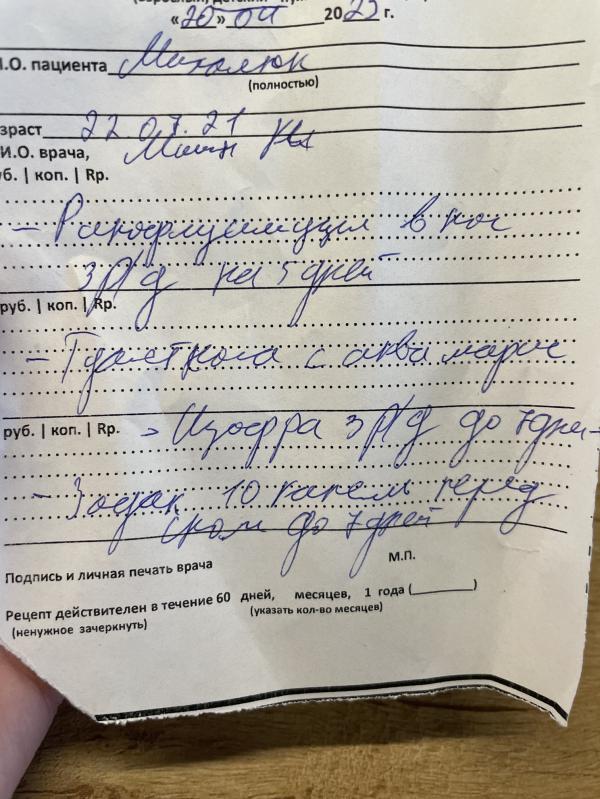 «20» 04 2023 г.
.О. пациента Михалюк
(полностью)
зраст 22.07.21
И.О. врача,
б. | коп. | Rp.
– Ринофлуимуцил в нос
3 р/д на 5 дней
руб. | коп. | Rp.
– Туалет носа с аква марис
руб. | коп. | Rp. > Изофра 3 р/д до 7 дней
– Зодак 10 капель перед
сном до 7 дней
Подпись и личная печать врача М.П.
Рецепт действителен в течение 60 дней, месяцев, 1 года (________)
(ненужное зачеркнуть) (указать кол-во месяцев)